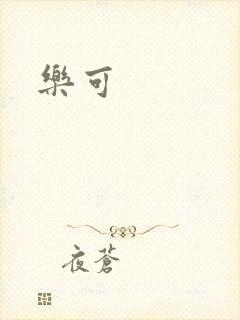 樂可
夜蒼